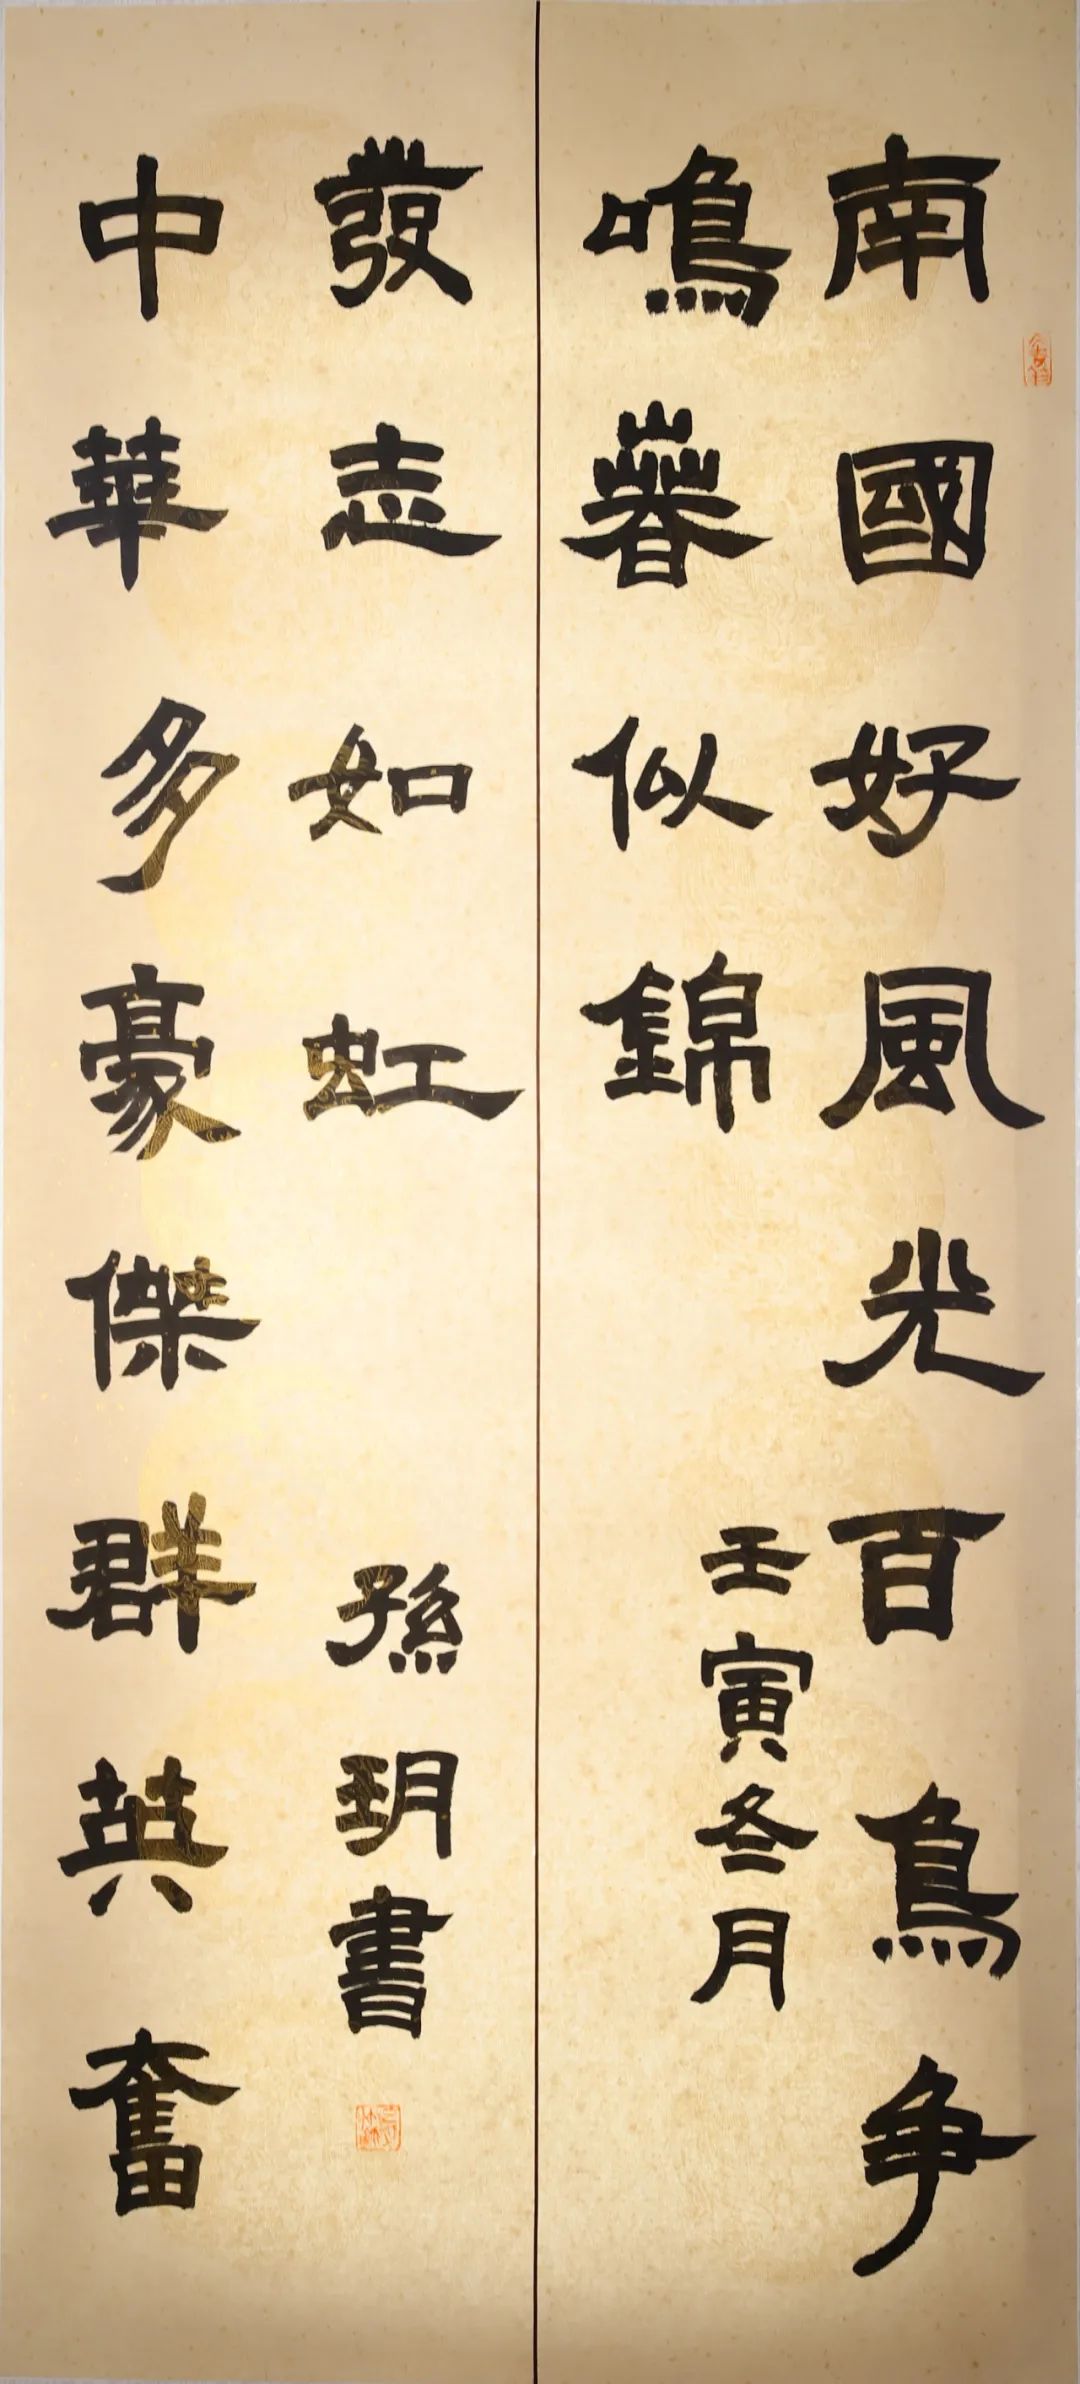 南國好風光百鳥争
鳴春似錦
壬寅冬月
中華多豪傑群英奮
發志如虹
孫玥書